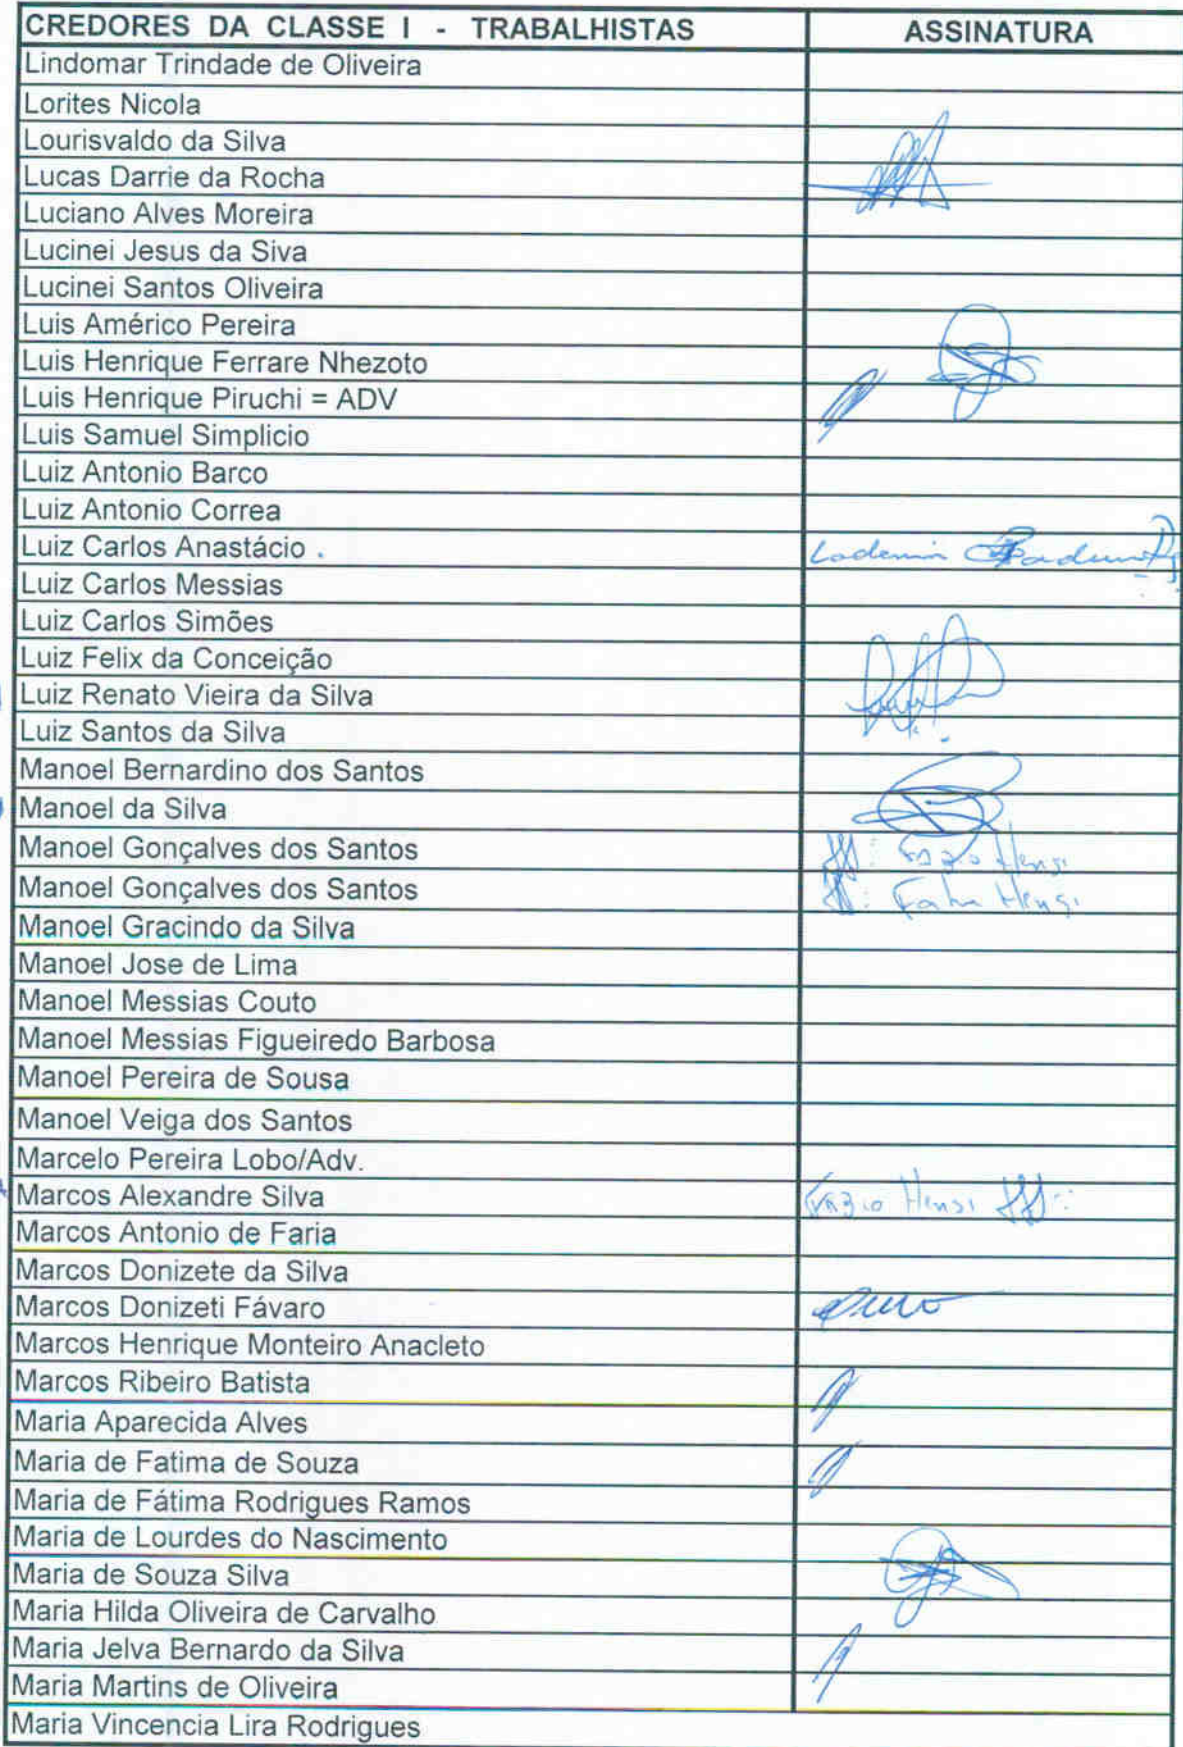 CREDORES DA CLASSE I - TRABALHISTAS ASSINATURA
Lindomar Trindade de Oliveira
Lorites Nicola
Lourisvaldo da Silva
Lucas Darrie da Rocha
Luciano Alves Moreira
Lucinei Jesus da Siva
Lucinei Santos Oliveira
Luis Américo Pereira
Luis Henrique Ferrare Nhezoto
Luis Henrique Piruchi = ADV
Luis Samuel Simplicio
Luiz Antonio Barco
Luiz Antonio Correa
Luiz Carlos Anastácio .
Luiz Carlos Messias
Luiz Carlos Simões
Luiz Felix da Conceição
Luiz Renato Vieira da Silva
Luiz Santos da Silva
Manoel Bernardino dos Santos
Manoel da Silva
Manoel Gonçalves dos Santos
Manoel Gonçalves dos Santos
Manoel Gracindo da Silva
Manoel Jose de Lima
Manoel Messias Couto
Manoel Messias Figueiredo Barbosa
Manoel Pereira de Sousa
Manoel Veiga dos Santos
Marcelo Pereira Lobo/Adv.
Marcos Alexandre Silva
Marcos Antonio de Faria
Marcos Donizete da Silva
Marcos Donizeti Fávaro
Marcos Henrique Monteiro Anacleto
Marcos Ribeiro Batista
Maria Aparecida Alves
Maria de Fatima de Souza
Maria de Fátima Rodrigues Ramos
Maria de Lourdes do Nascimento
Maria de Souza Silva
Maria Hilda Oliveira de Carvalho
Maria Jelva Bernardo da Silva
Maria Martins de Oliveira
Maria Vincencia Lira Rodrigues